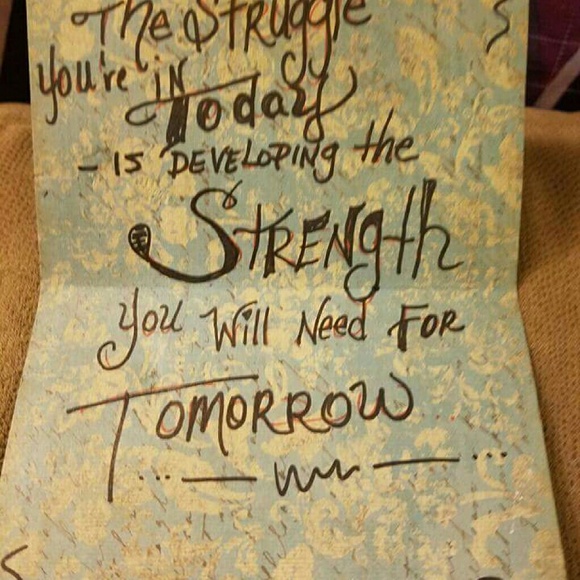 The Struggle
you're in
Today
- is DEVELOPING the
STRENgth
you Will Need FOR
TOMORROW